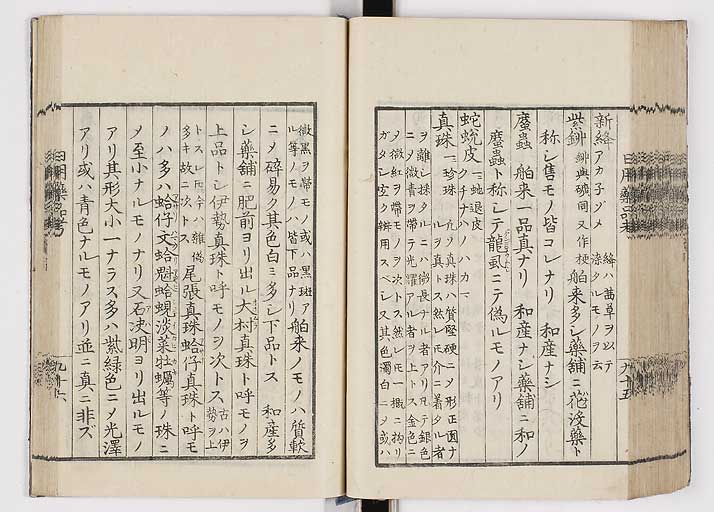 新絳 アカ子ゾメ 絳ハ茜草ヲ以テ
染タルモノヲ云
紫鉚 鉚與礦同又作梗 舶来多シ藥舗ニ花没藥ト
称シ售モノ皆コレナリ 和産ナシ
䗪蟲 舶来一品真ナリ 和産ナシ藥舗ニ和ノ
䗪蟲ト称シテ龍虱ニテ偽ルモノアリ
蛇蛻皮 一ニ蛇退皮
クチナハノカハ
真珠 一ニ珍珠 凡ソ真珠ハ質堅硬ニメ形正圓ナ
ルヲ真トス然レ𪜈介ニ着タル者
ヲ離シ採タルニハ微長ナル者アリ凡テ銀色
ニメ微青ヲ帯テ光耀アル者ヲ上トス金色ニ
メ微紅ヲ帯モノヲ次トス然レ𪜈一概ニ拘リ
ガタシ宜ク辨用スベシ又其色濁白ニメ或ハ
日用藥品考
九十五
微黒ヲ帯モノ或ハ黒斑ア
ル等ノモノハ皆下品ナリ 舶来ノモノハ質軟
ニメ碎易ク其色白ミ多シ下品トス 和産多
シ藥舗ニ肥前ヨリ出ル大村真珠ト呼モノヲ
上品トシ伊勢真珠ト呼モノヲ次トス 古ハ伊
勢ヲ上
トスレ𪜈今ハ雜偽
多キ故ニ次トス 尾張真珠蛤仔真珠ト呼モ
ノハ多ハ蛤仔文蛤魁蛤蜆淡菜牡蠣等ノ珠ニ
メ至小ナルモノナリ又石决明ヨリ出ルモノ
アリ其形大小一ナラス多ハ紫緑色ニメ光澤
アリ或ハ青色ナルモノアリ並ニ真ニ非ズ
日用藥品考
九十六